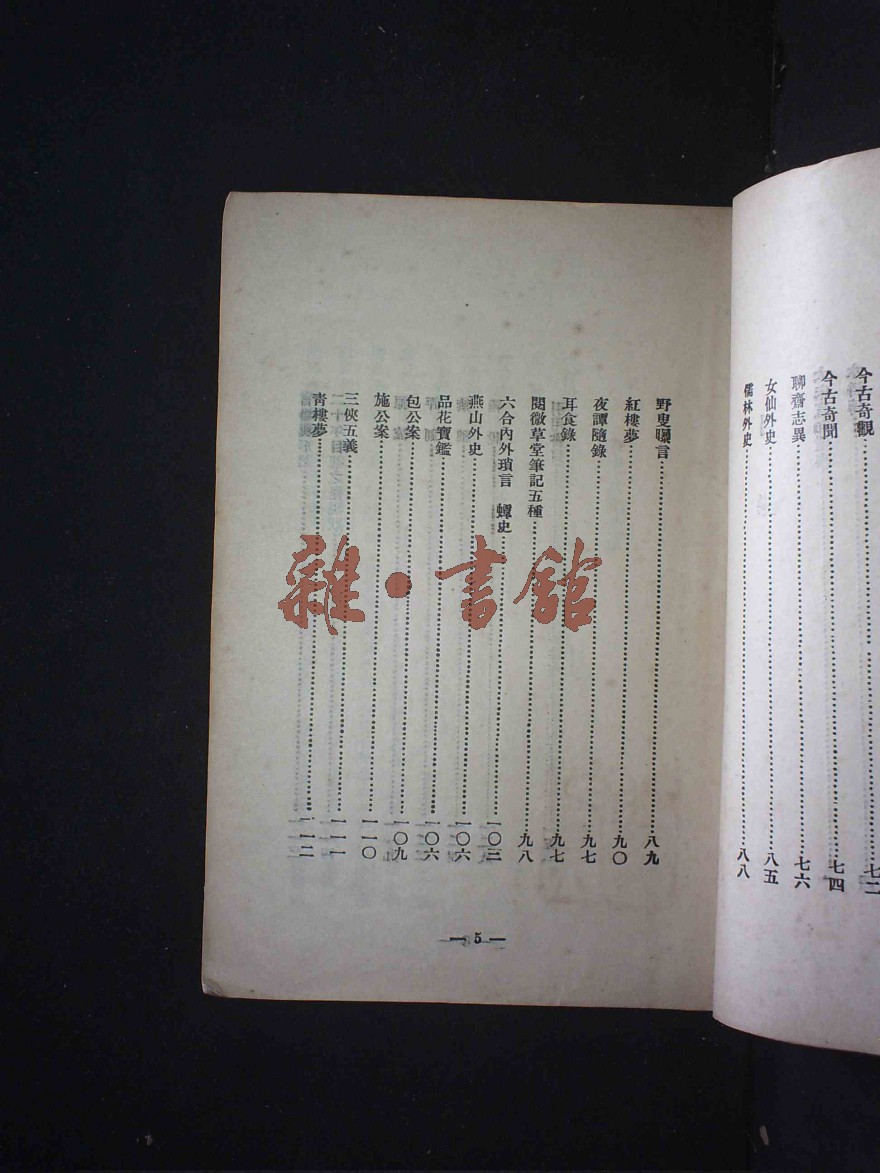 今古奇觀…七二
今古奇聞…七四
聊齋志異…七六
女仙外史…八五
儒林外史…八八
野叟曝言…八九
紅樓夢…九〇
夜譚隨錄…九七
耳食錄…九七
閱微草堂筆記五種…九八
六合內外瑣言 蟫史…一〇三
燕山外史…一〇六
品花寶鑑…一〇六
包公案…一〇九
施公案…一一〇
三俠五義…一一一
青樓夢…一一二
— 5 —
雜·書館